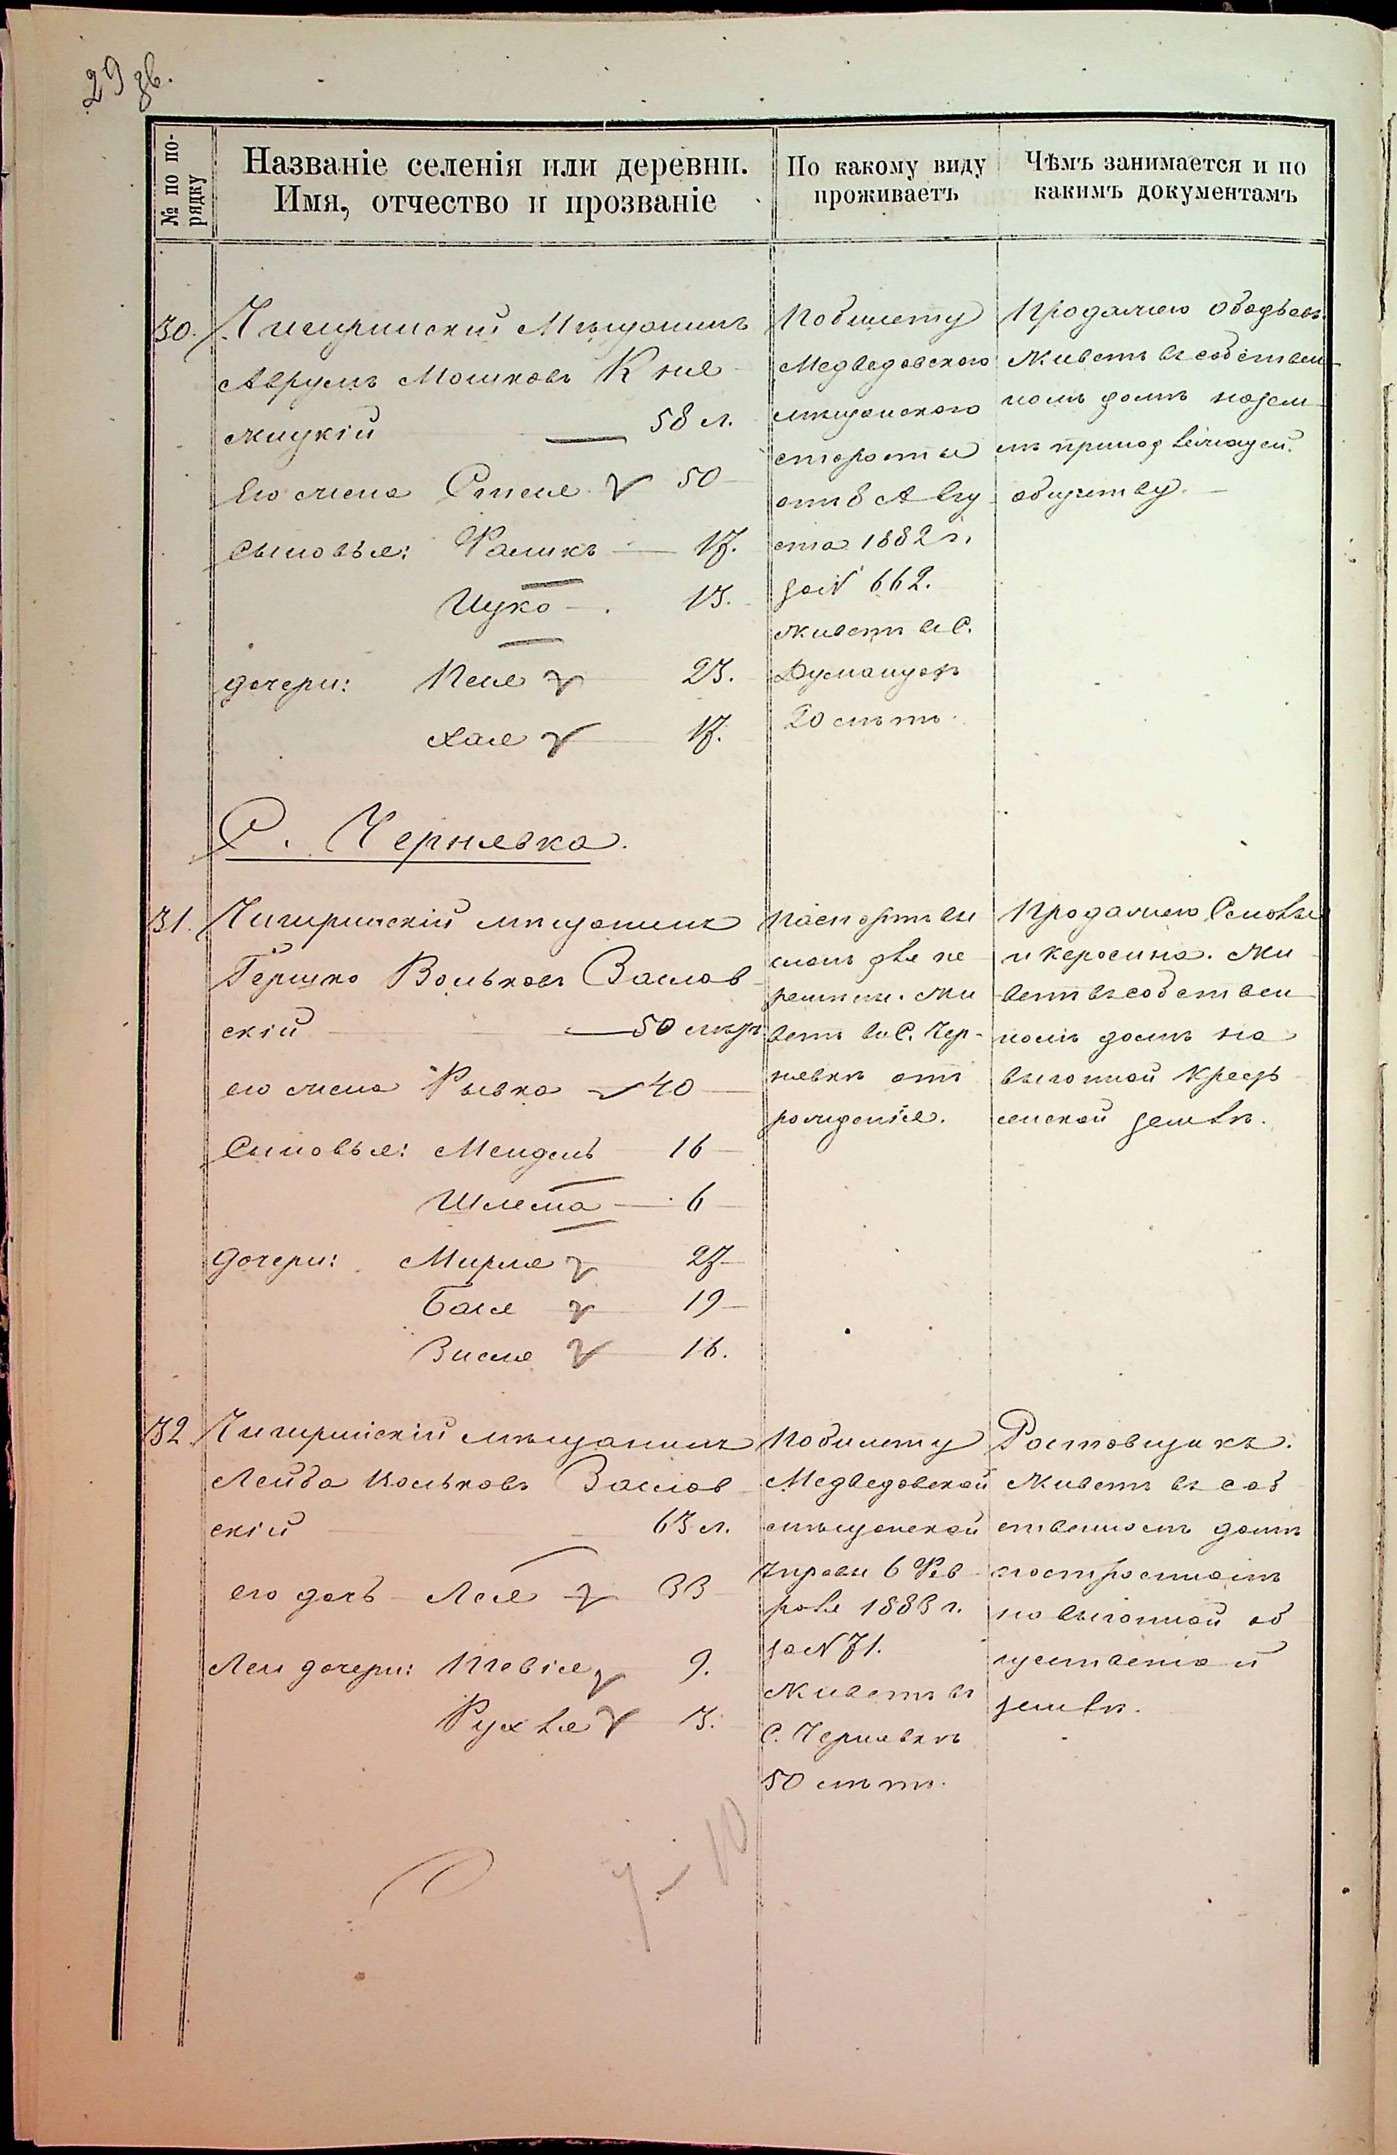 29 зв.
№ по по-
рядку
Названіе селенія или деревни.
Имя, отчество и прозваніе
По какому виду
проживаетъ
Чѣмъ занимается и по
какимъ документамъ
30. Чигиринскій Мѣщанинъ
Аврумъ Мошковъ Кня
жицкій — 58 л.
Его жена 50
Сыновья: Фаликъ — 17.
Ицко — 13.
дочери: Песя 23.
Хая 17.
По билету
Медведовского
мѣщанского
старосты
отъ 8 Авгу
ста 1882 г.
за № 662.
живетъ въ С.
Думанцахъ
20 лѣтъ.
Продажею
Живетъ въ собствен
номъ домѣ на зем
лѣ принадлежащей
обществу.
С. Чернявка.
31. Чигиринскій мѣщанинъ
Гершко Вольковъ Заслав
скій — 50 лѣтъ.
его жена Рывка 40
Сыновья: Мендель 16
Шлема — 6
дочери: Мирля 27
Бася 19
Зисля 16.
Паспортъ вы
сланъ для пе
ремѣны. Жи
ветъ въ С. Чер-
нявкѣ отъ
рожденія.
Продажею Соловьи
и керосина. Жи
ветъ въ собствен
номъ домѣ на
выгонной кресть
янской землѣ.
32. Чигиринскій мѣщанинъ
Лейба Вольковъ Заслав
скій 63 л.
его дочь Лея 33
Леи дочери: 9.
Рухля 3.
По билету
Медведовской
мѣщанской
Управы 6 Фев
раля 1883 г.
за № 71.
Живетъ въ
С. Чернявкѣ
50 лѣтъ.
Ростовщикъ.
Живетъ въ соб
ственномъ домѣ
построенномъ
на выгонной об
щественной
землѣ.
7 – 10